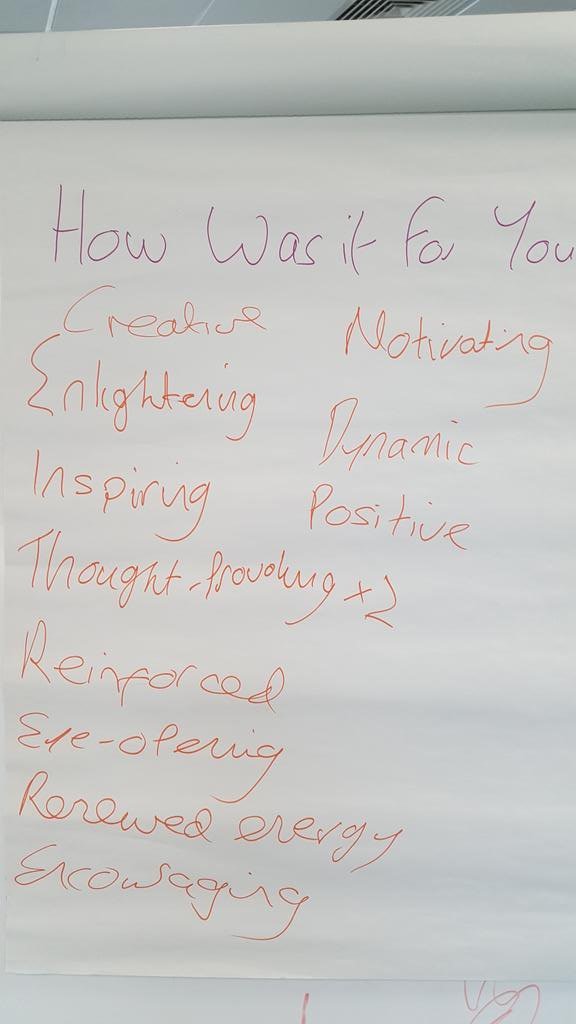 How Was it For You
Creative
Enlightering
Inspiring
Thought-Provoking x2
Reinforced
Eye-opening
Renewed energy
Encouraging
Motivating
Dynamic
Positive